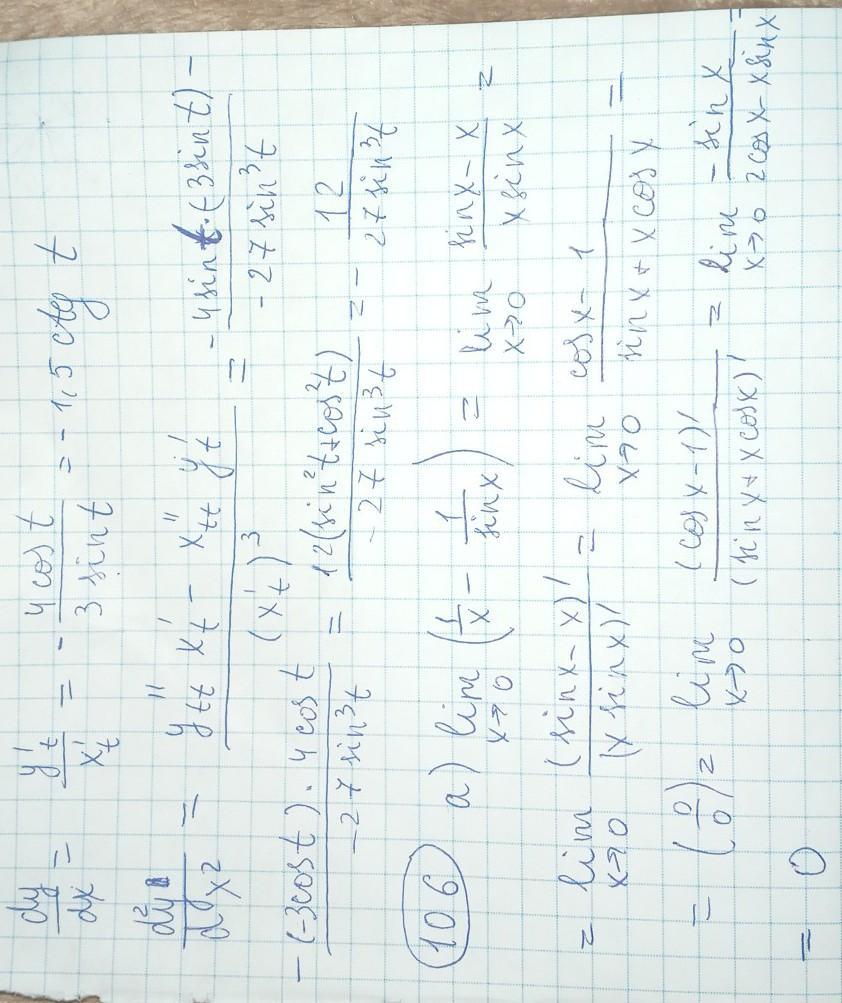 dy/dx = y't/x't = - 4cost/3sint = -1,5 ctg t
d²y/dx² = (y''tt x't - x''tt y't)/(x't)³ = (-4sint·(-3sint) -)/(-27sin³t)
(-(-3cost)·4cost)/(-27sin³t) = 12(sin²t+cos²t)/(-27sin³t) = - 12/(27sin³t)
106 a) lim x→0 (1/x - 1/sinx) = lim x→0 (sinx-x)/(xsinx) =
= lim x→0 (sinx-x)'/(xsinx)' = lim x→0 (cosx-1)/(sinx+xcosx) =
= (0/0) = lim x→0 (cosx-1)'/(sinx+xcosx)' = lim x→0 (-sinx)/(2cosx-xsinx) =
= 0